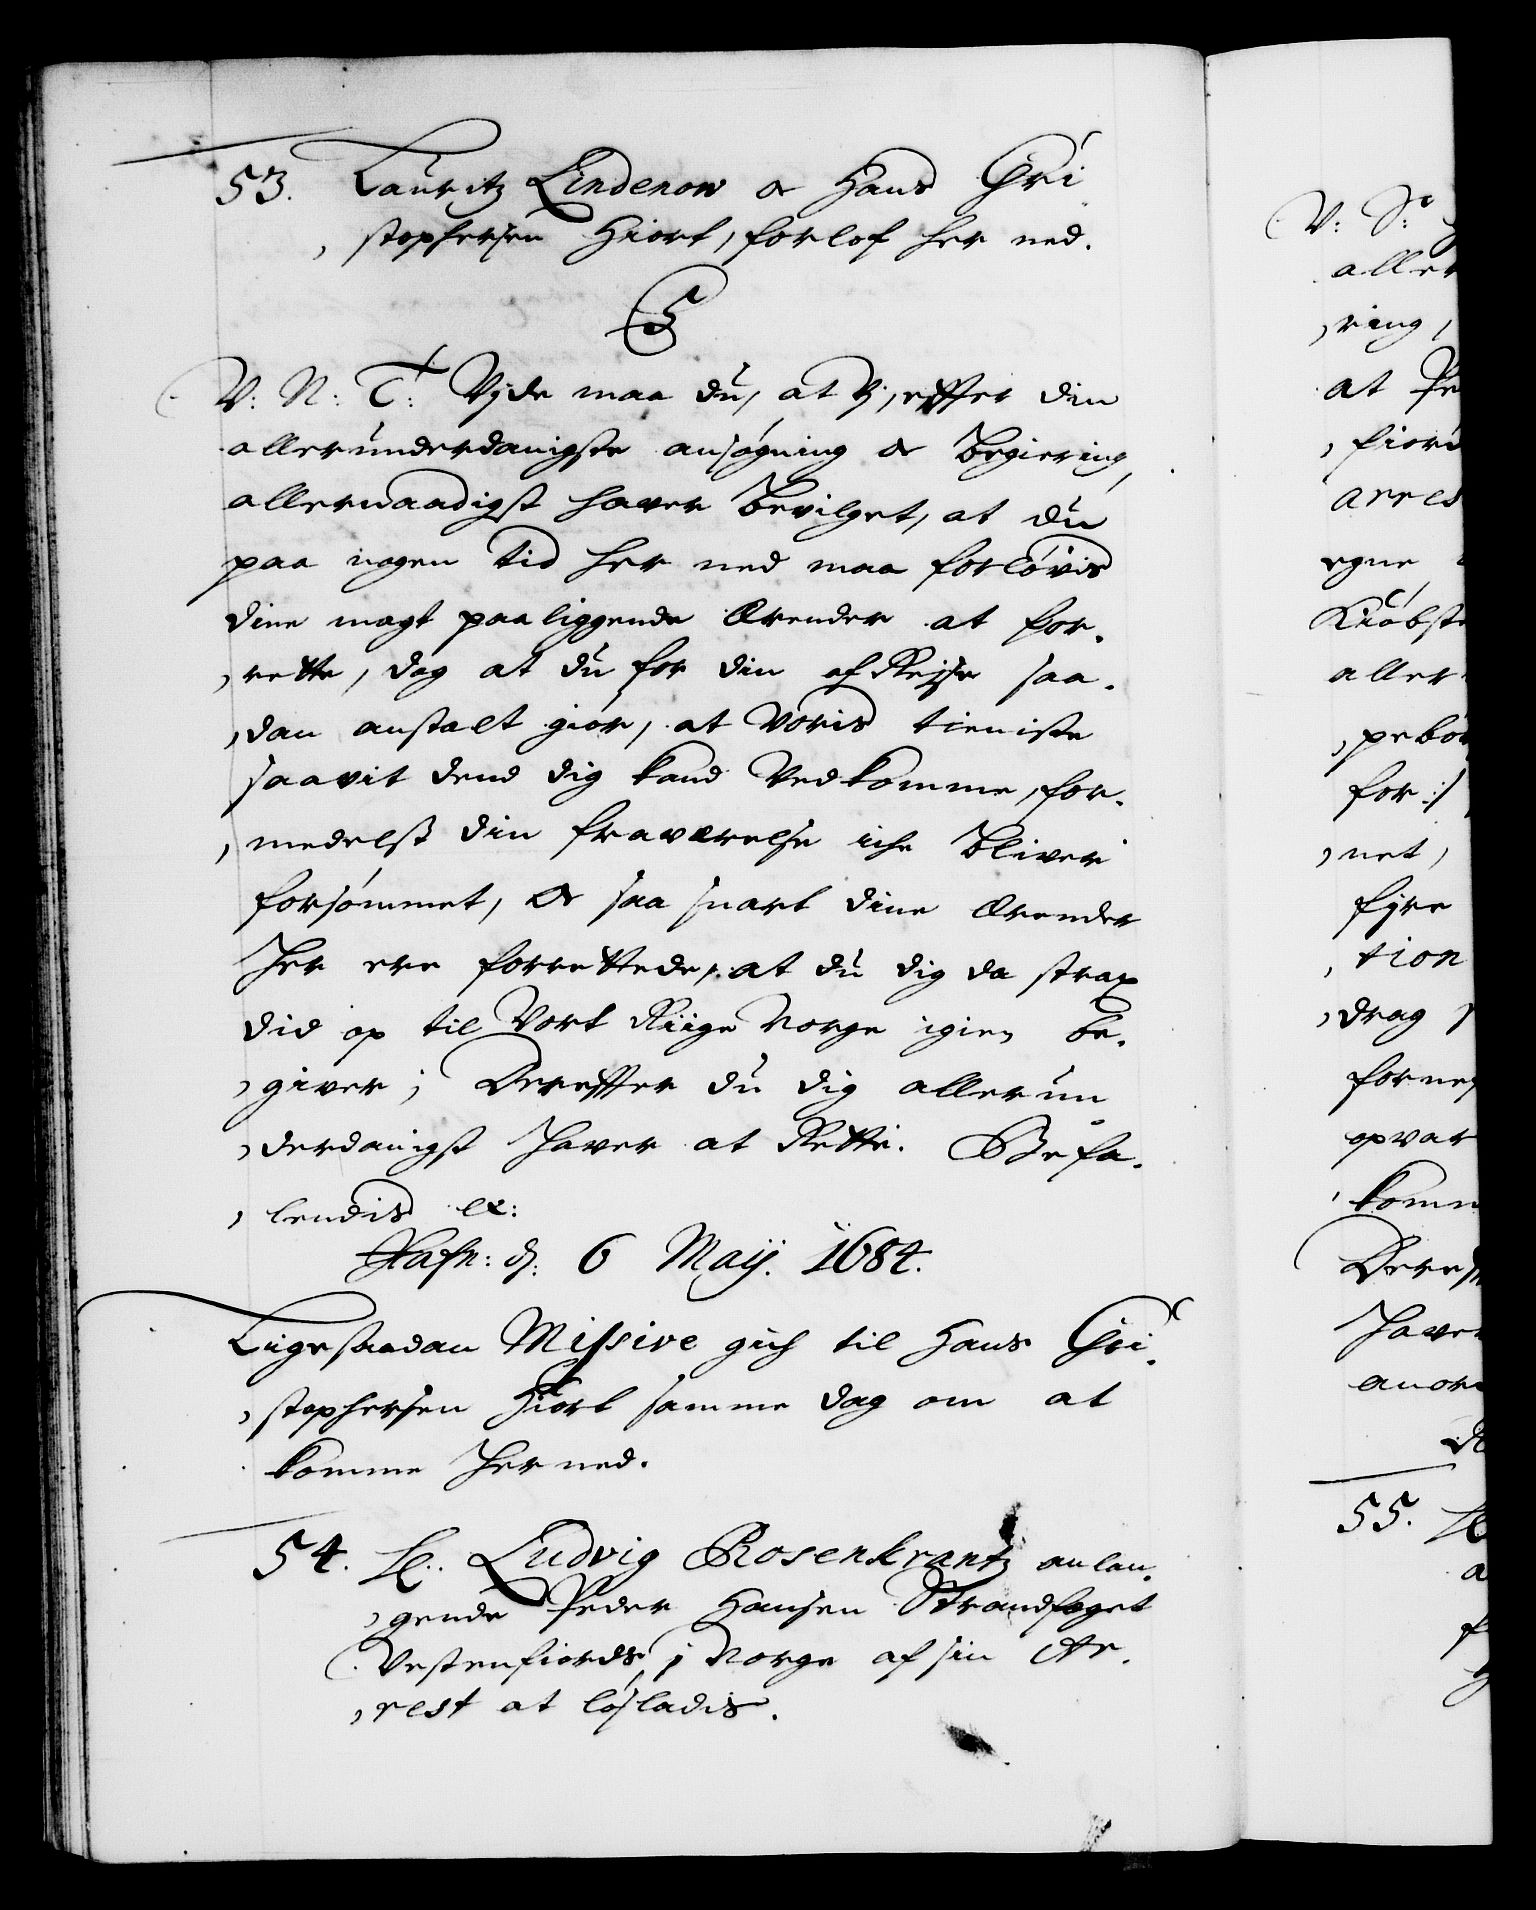 53. Lauritz Lindenow oc Hans Chri
, stophersen Hiort, forlof her ned.
C5
V: N: T: Vjde maa du, at Vj, efter din
allerunderdanigste ansøgning oc Begiering,
allernaadigst hafver Bevilget, at du
paa nogen tid her ned maa forløvis
dine magt paaliggende Ærender at for,
, rette, dog at du for din af Rejse saa,
, dan anstalt giør, at Voris tieniste
saavit dend dig kand Vedkomme, for,
, medelst din fraværelse iche Bliver
forsømmet, oc saa snart dine Ærender
her ere forrettede, at du dig da strax
did op til Vort Riige Norge igien be,
, giver; Derefter du dig allerun
, derdanigst hafver at Rette. Befa,
, lendis etc:
Hafn: d: 6 Maij. 1684.
Ligesaadan Missive gich til Hans Chri,
, stophersen Hiort samme dag om at
komme her ned.
54. H: Ludvig Rosenkrantz anlan,
, gende Peder Hansen Strandfoget
Vestenfiords i Norge af sin Ar,
, rest at løsladis.
V: S:
aller
, ring,
at Pe
, fiord
arres
egne
Kiøbste
aller
, pebør
for :/
, net,
fyre
, tion
, drag
fornef
opvar
, komm
Deref
hafver
anor
55. H